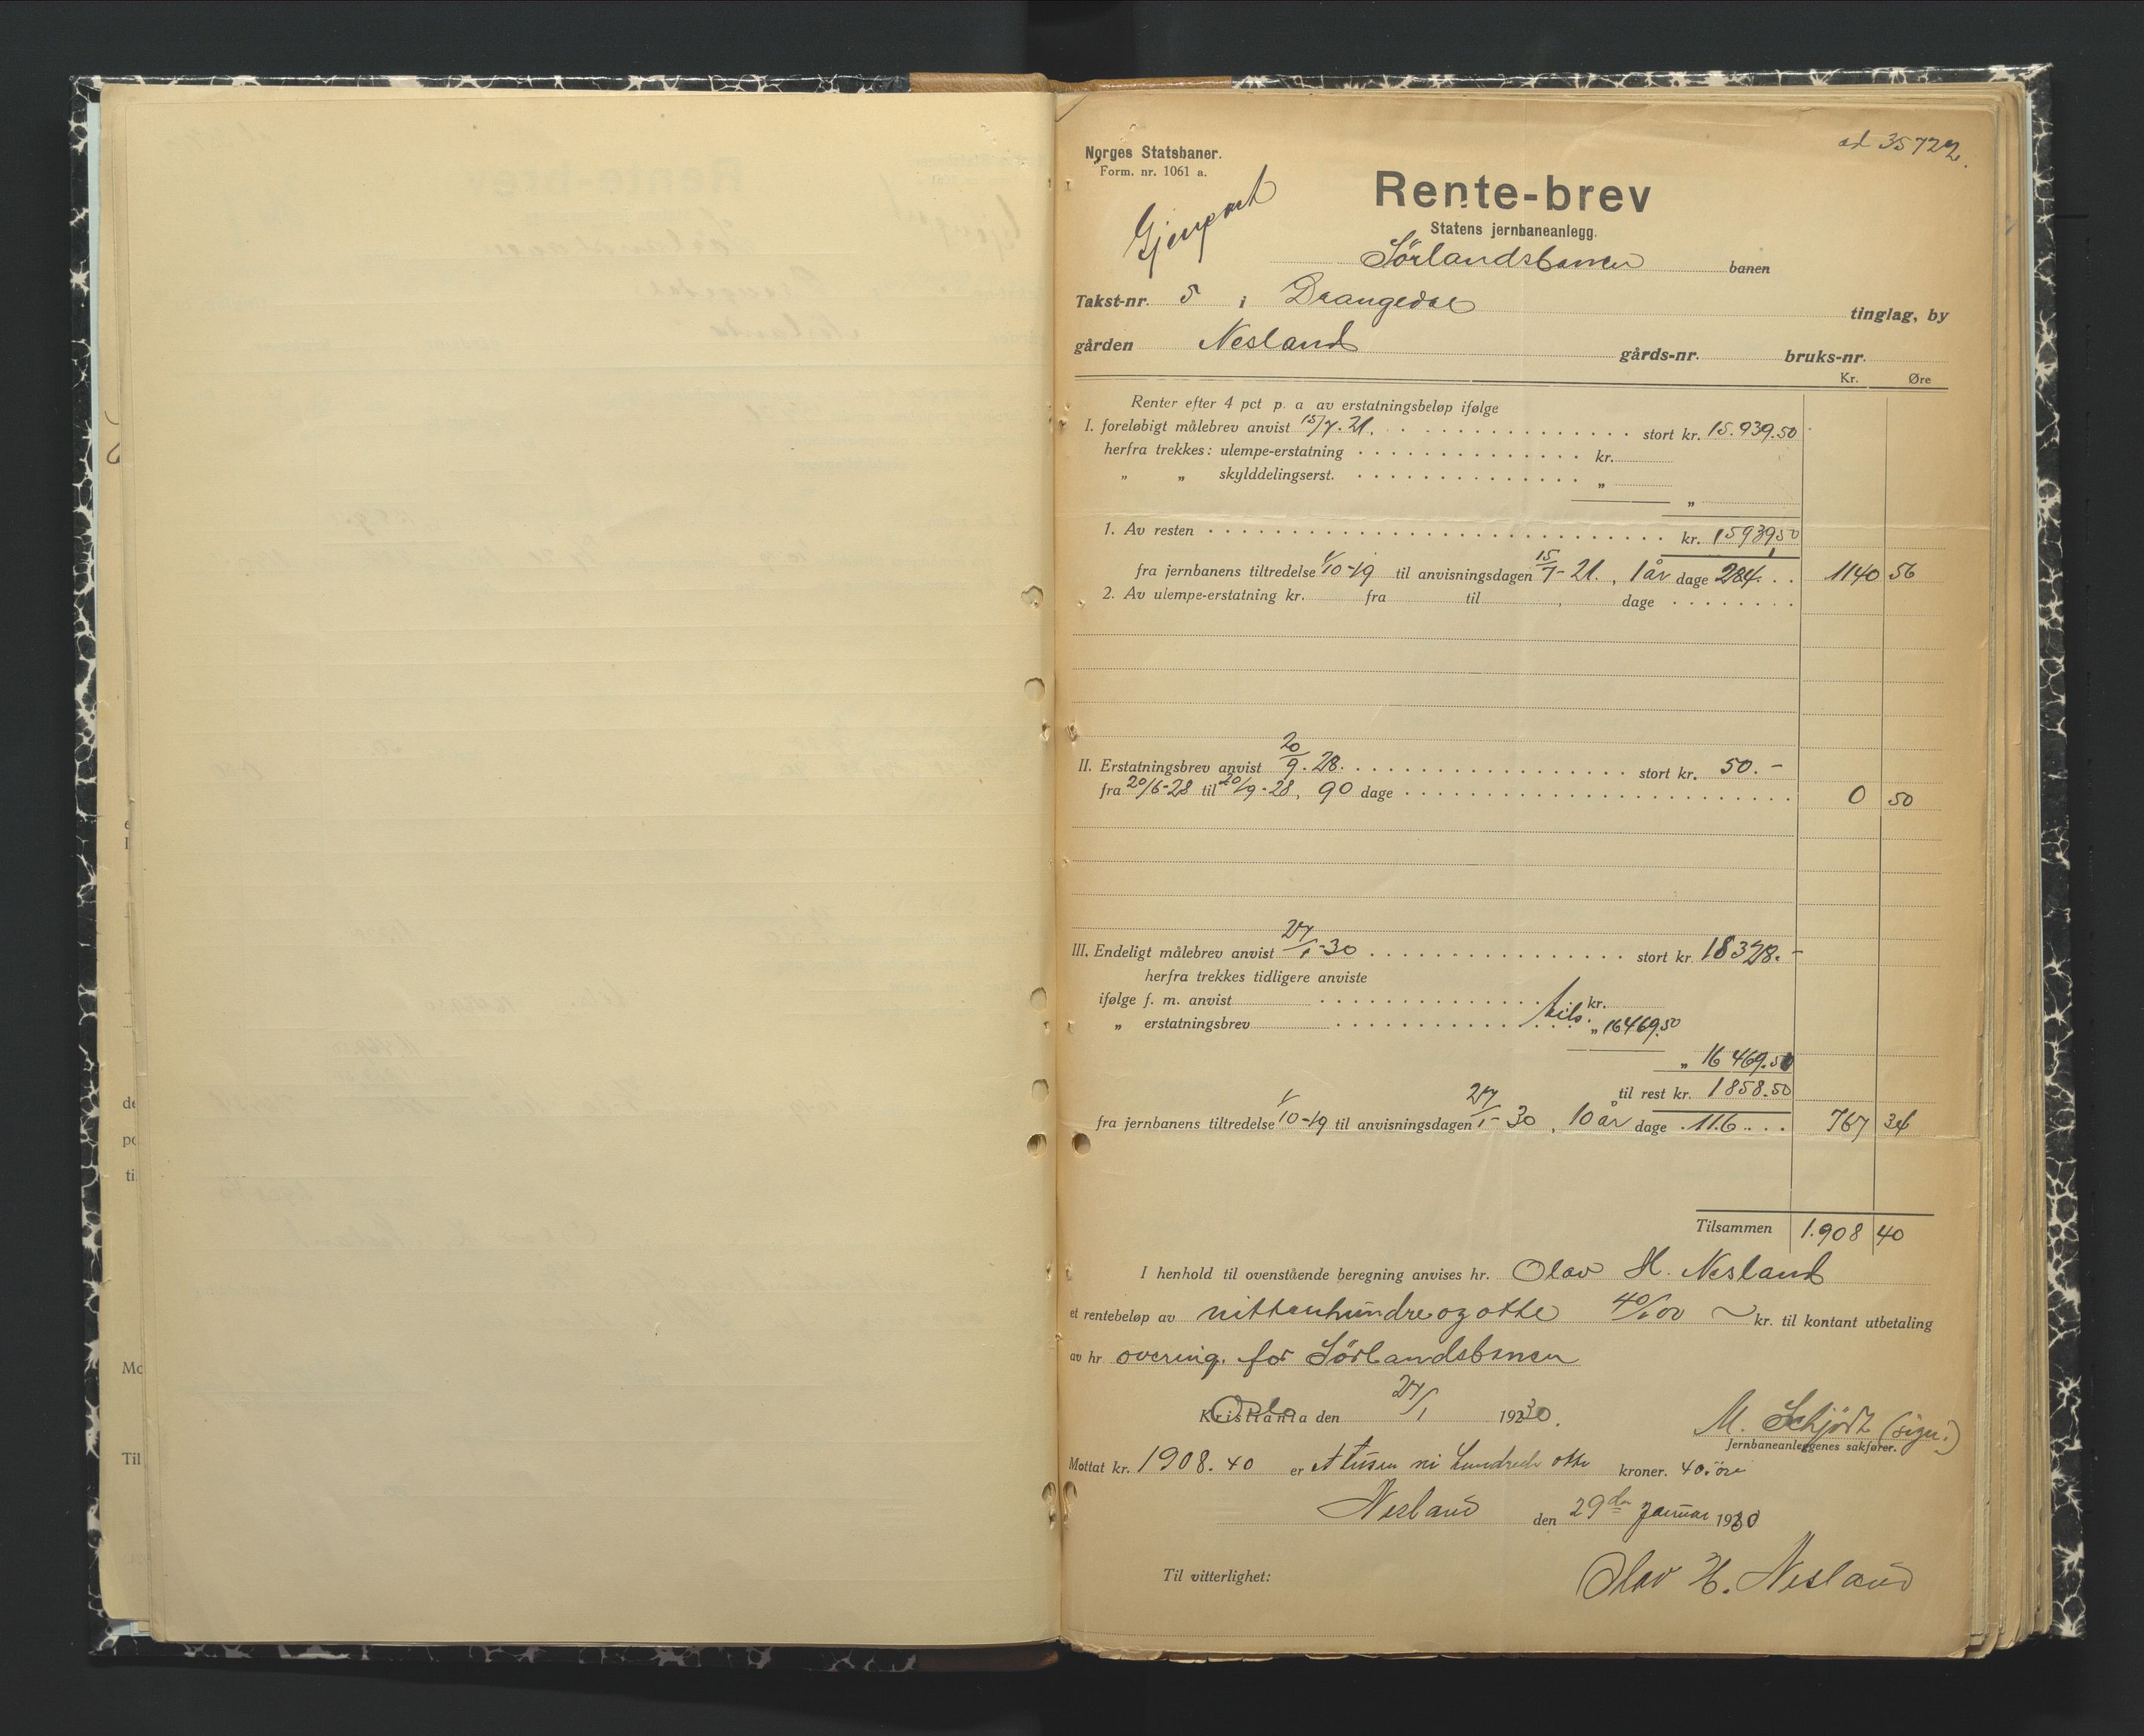 ad 35722.
Norges Statsbaner.
Form. nr. 1061 a.
Gjenpart
Rente-brev
Statens jernbaneanlegg.
Sörlandsbanen banen
Takst-nr. 5 i Drangedal tinglag, by
gården Nesland gårds-nr. bruks-nr.
Kr. Øre
Renter efter 4 pct p. a av erstatningsbeløp ifølge
I. foreløbigt målebrev anvist 15/7. 21. stort kr. 15.939.50
herfra trekkes: ulempe-erstatning kr.
„ „ skylddelingserst. „
„
1. Av resten kr. 15939,50
fra jernbanens tiltredelse 1/10-19 til anvisningsdagen 15/7-21. , 1 år dage 284. 1140 56
2. Av ulempe-erstatning kr. fra til , dage
II. Erstatningsbrev anvist 20/9. 28. stort kr. 50.-
fra 20/6-28 til 20/9-28, 90 dage 0 50
III. Endeligt målebrev anvist 27/1-30 stort kr 18328.-
herfra trekkes tidligere anviste
ifølge f. m. anvist kr.
„ erstatningsbrev tils. „ 16469.50
„ 16 469.50
til rest kr. 1858.50
fra jernbanens tiltredelse 1/10-19 til anvisningsdagen 27/1-30 , 10 år dage 116 767 34
Tilsammen 1.908 40
I henhold til ovenstående beregning anvises hr. Olav H. Nesland
et rentebeløp av nittenhundreogotte 40/100 kr. til kontant utbetaling
av hr overing. for Sörlandsbanen
Kristiania Oslo den 27/1 1930.
M. Schjödt (sign.)
Jernbaneanleggenes sakfører.
Mottat kr. 1908.40 er et tusen ni hundrede otte kroner. 40. öre
Nesland den 29de Januar 1930
Til vitterlighet:
Olav H. Nesland